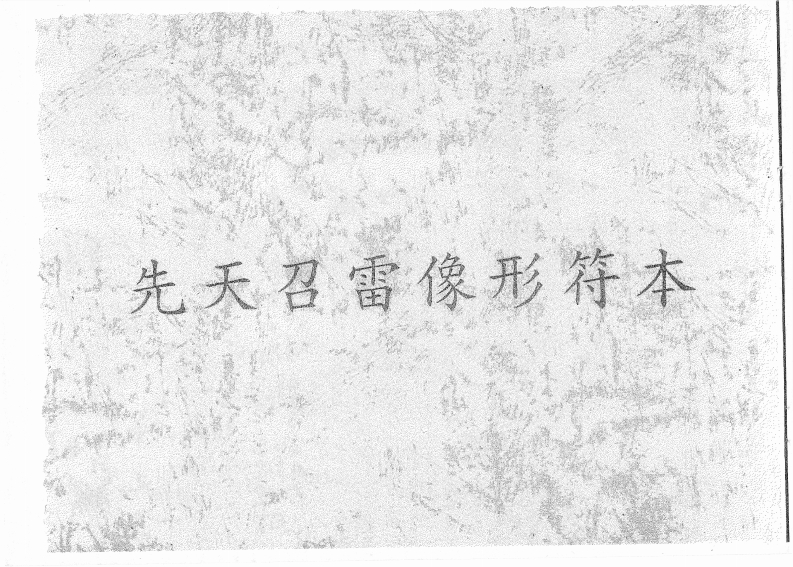 先天召雷像形符本